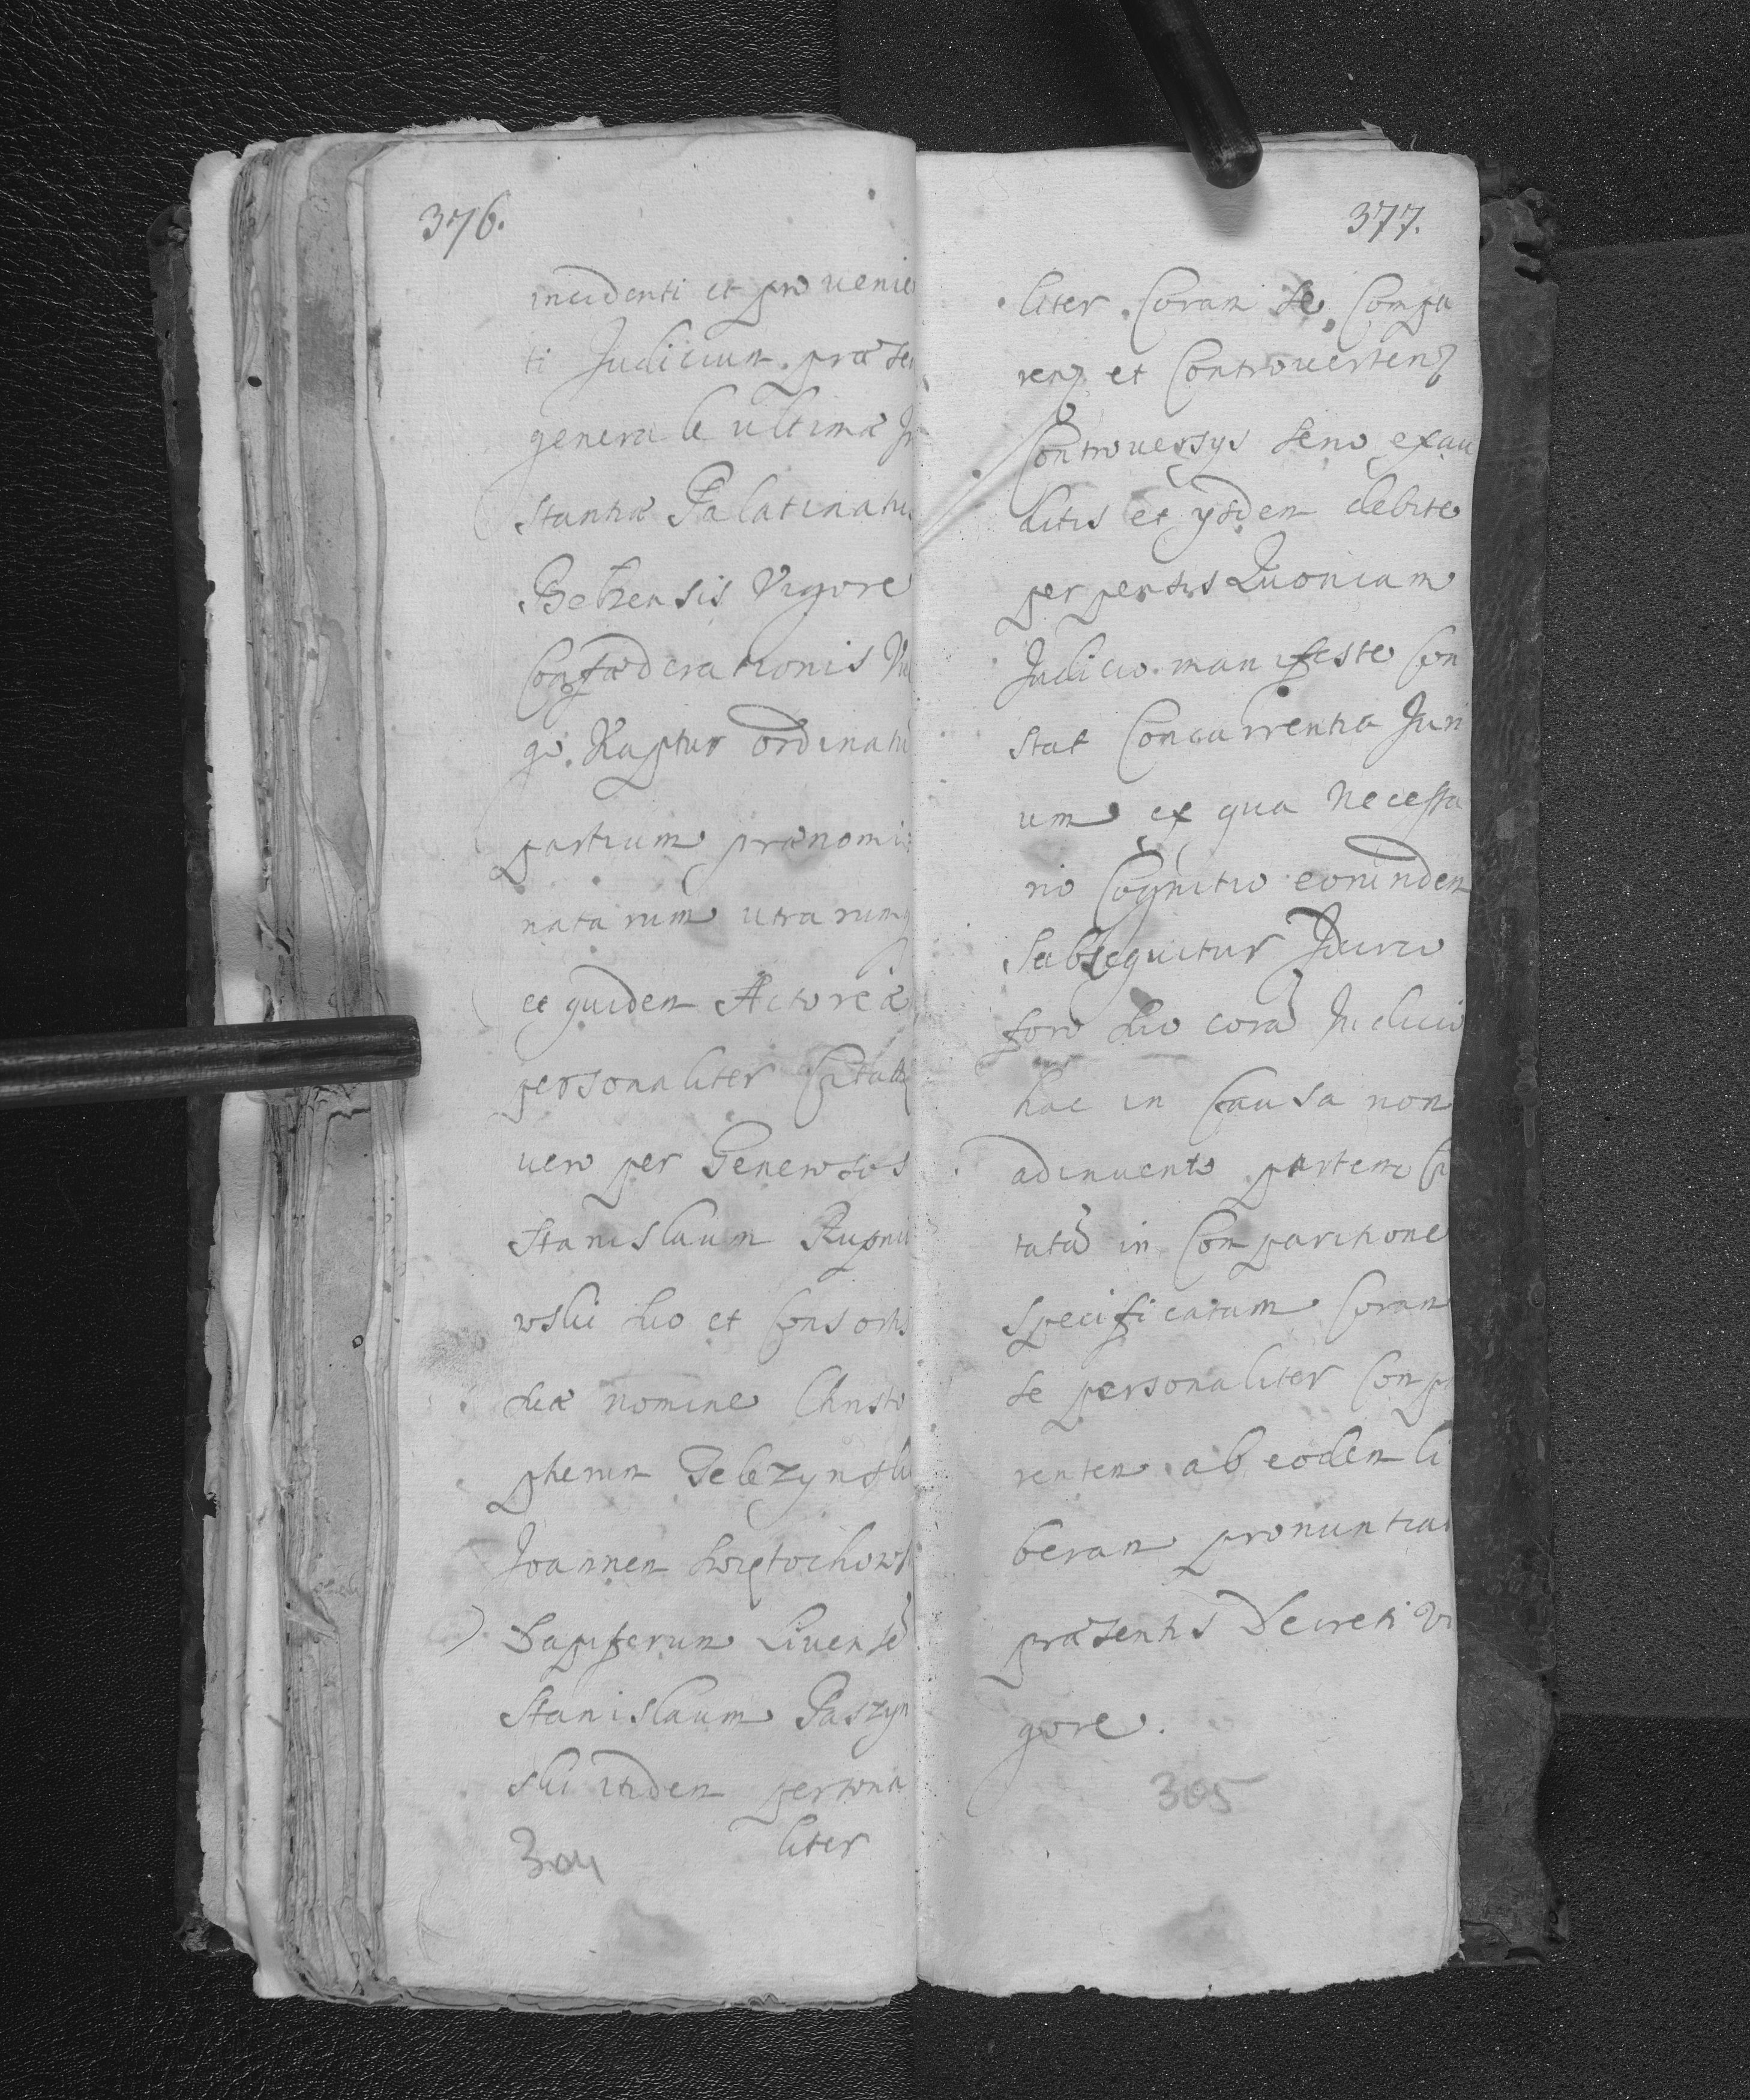 376.
incidenti et pro venie
ti Judicium præse
generale ultimæ Jn
stantiæ Palatinatu
Belzensis Vigore
Confæderationis Vul
go Kaptur ordinatū
partium prænomi
natarum utrarumq
et quidem Actoreæ
personaliter Citatæ
vero per Generosos
Stanislaum Rupnio
wski suo et Consortis
suæ nomine Christo
pherum
Joannem Swiętochows
Dapiferum Livensē
Stanislaum Paszyn
ski itidem persona
liter
304
377.
liter Coram se Compa
ren et Controverten
Controversys seno exau
ditis et ysdem debite
perpensis Quoniam
Judicio manifeste Con
stat Concurrentia Juri
um ex qua necessa
rio Cognitio eorundem
subsequitur Jdcirco
foro suo corā Judicio
hac in Causa non
adinvento partem Ci
tatā in Comparitione
specificatam Coram
se personaliter Compa
rentem ab eodem li
beram pronuntiat
præsentis Decreti Vi
gore.
305